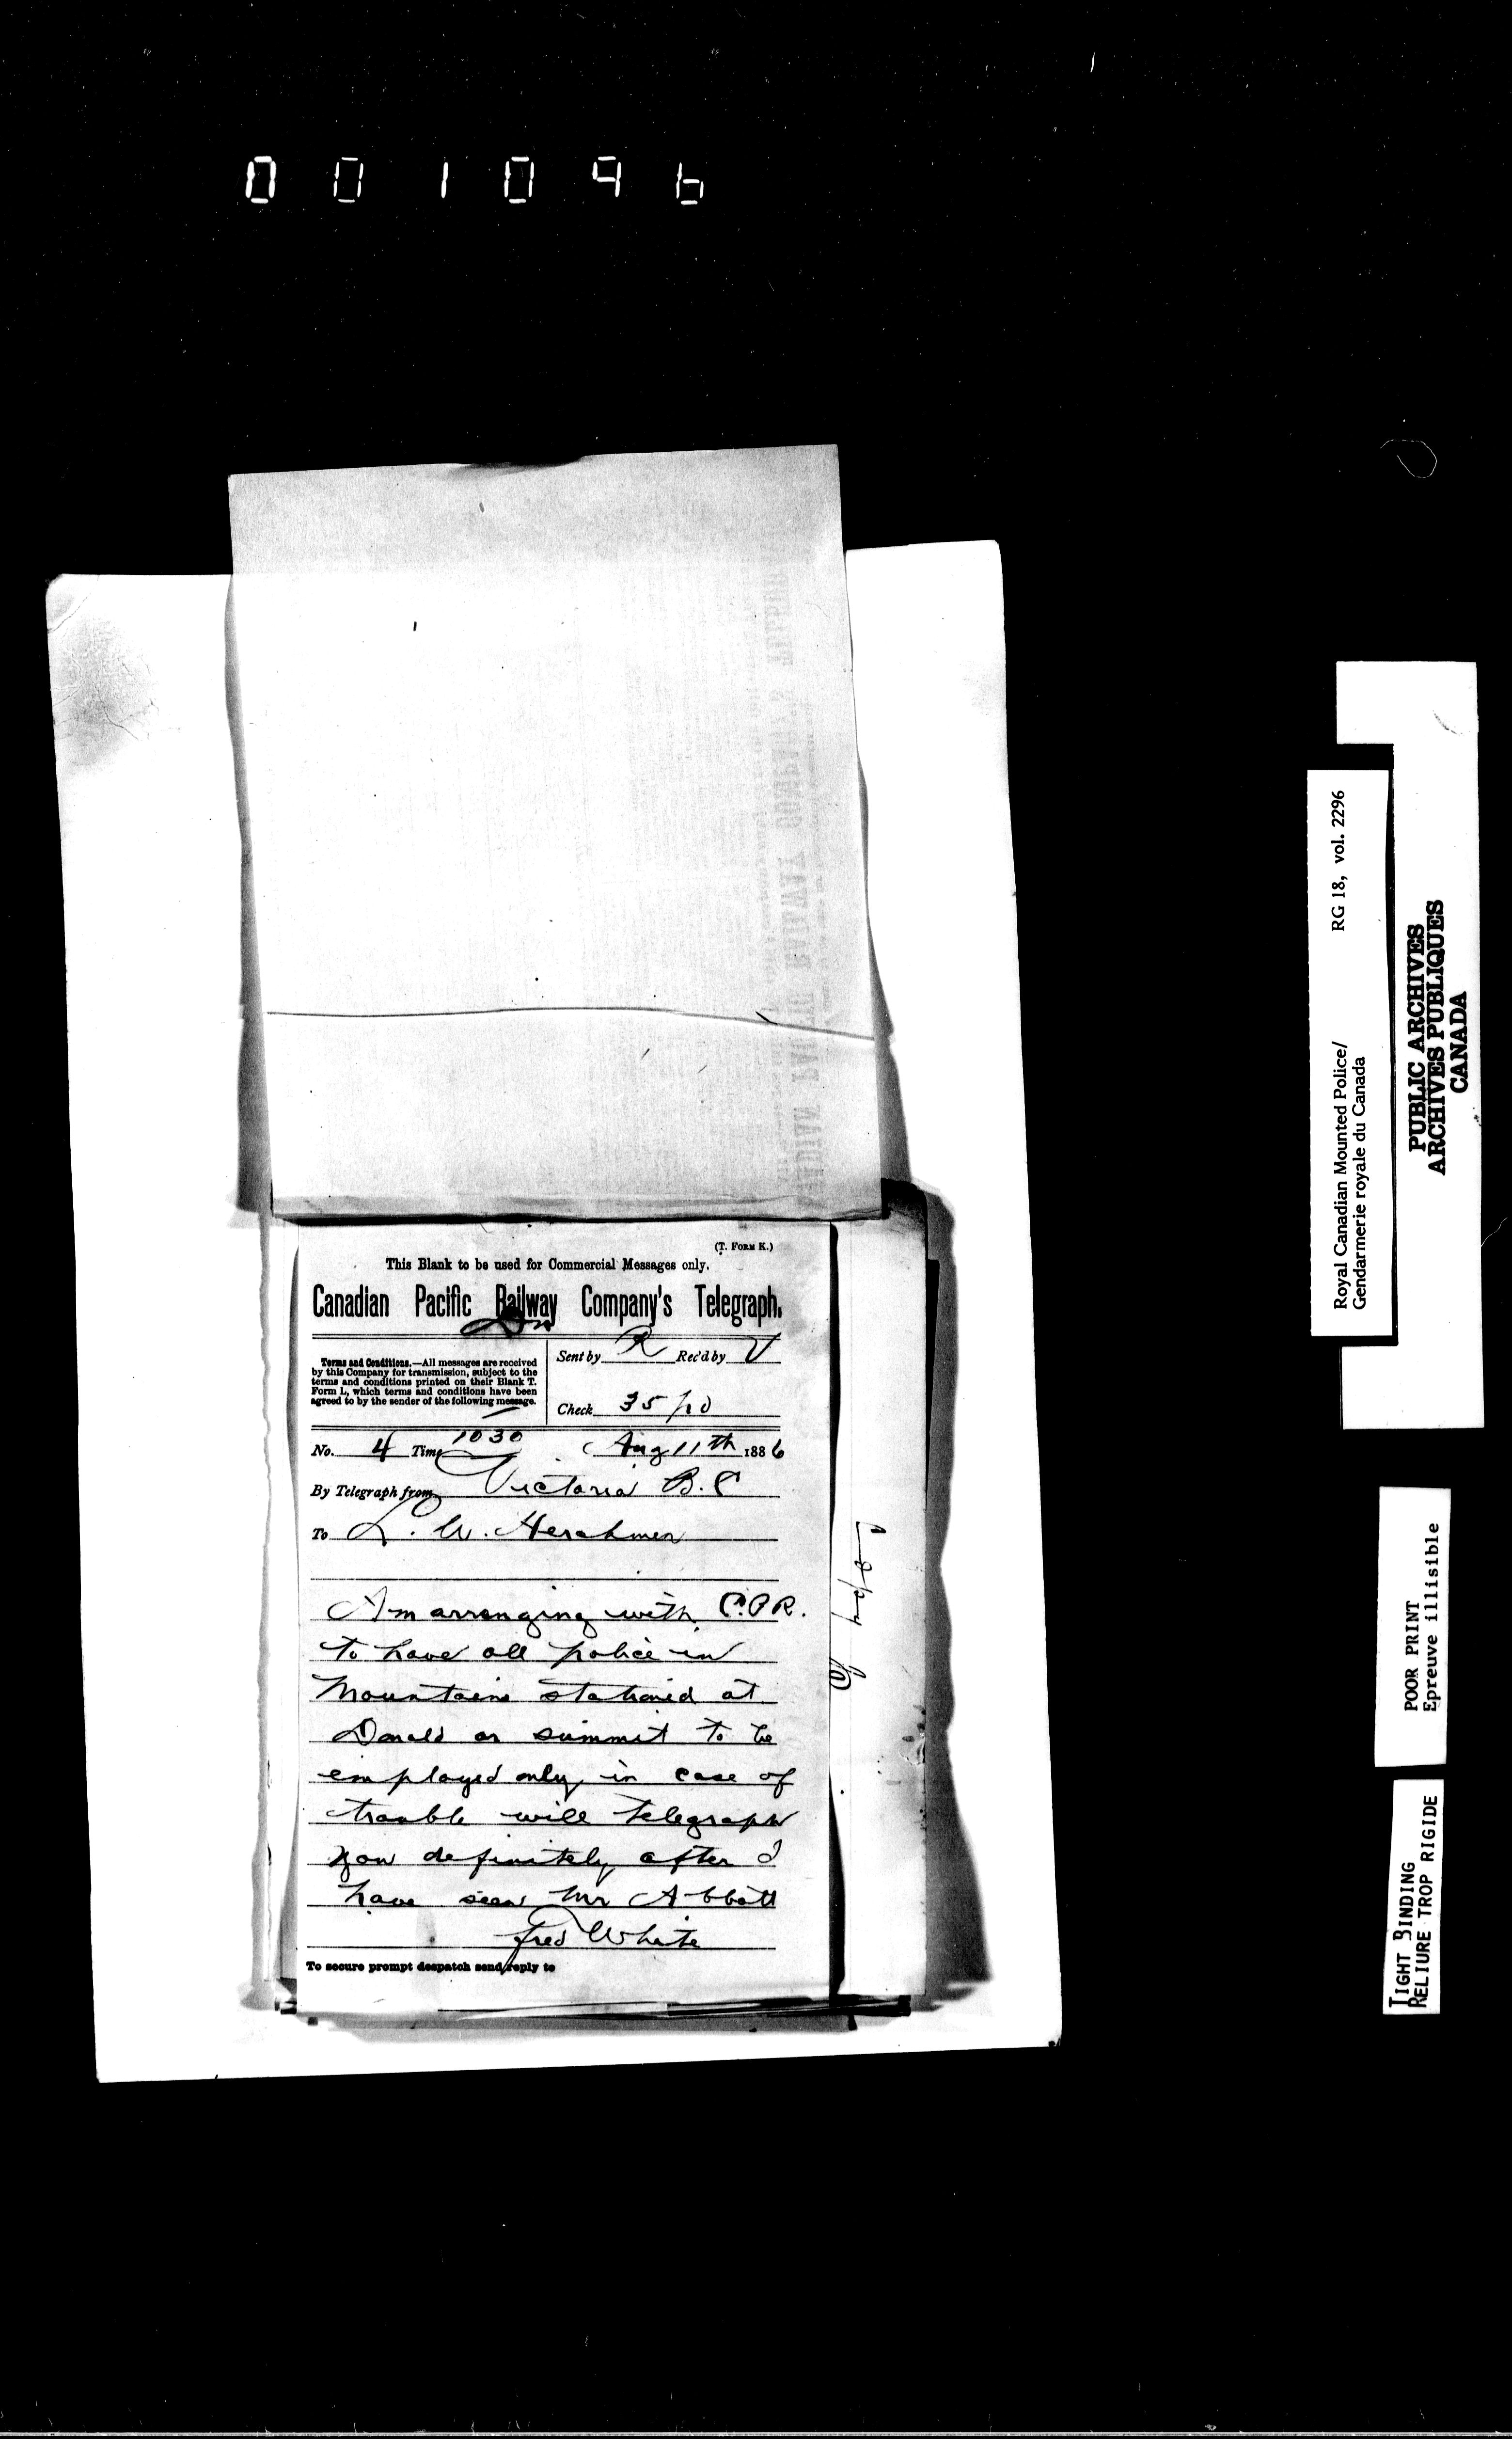 001096
(T. FORM K.)
This Blank to be used for Commercial Messages only.
Canadian Pacific Railway Company's Telegraph.
Terms and Conditions.—All messages are received
by this Company for transmission, subject to the
terms and conditions printed on their Blank T.
Form L, which terms and conditions have been
agreed to by the sender of the following message.
Sent by R Rec'd by V
Check 35
No. 4 Time 1030 Aug 11th 1886
By Telegraph from Victoria B.C
To L. W. Herchmer
Am arranging with C.P.R.
to have all police in
Mountains stationed at
Donald or summit to be
employed only in case of
trouble will telegraph
you definitely after I
have seen Mr Abbott
Fred White
To secure prompt despatch send reply to
Royal Canadian Mounted Police/ RG 18, vol. 2296
Gendarmerie royale du Canada
PUBLIC ARCHIVES
ARCHIVES PUBLIQUES
CANADA
POOR PRINT
Epreuve illisible
TIGHT BINDING
RELIURE TROP RIGIDE